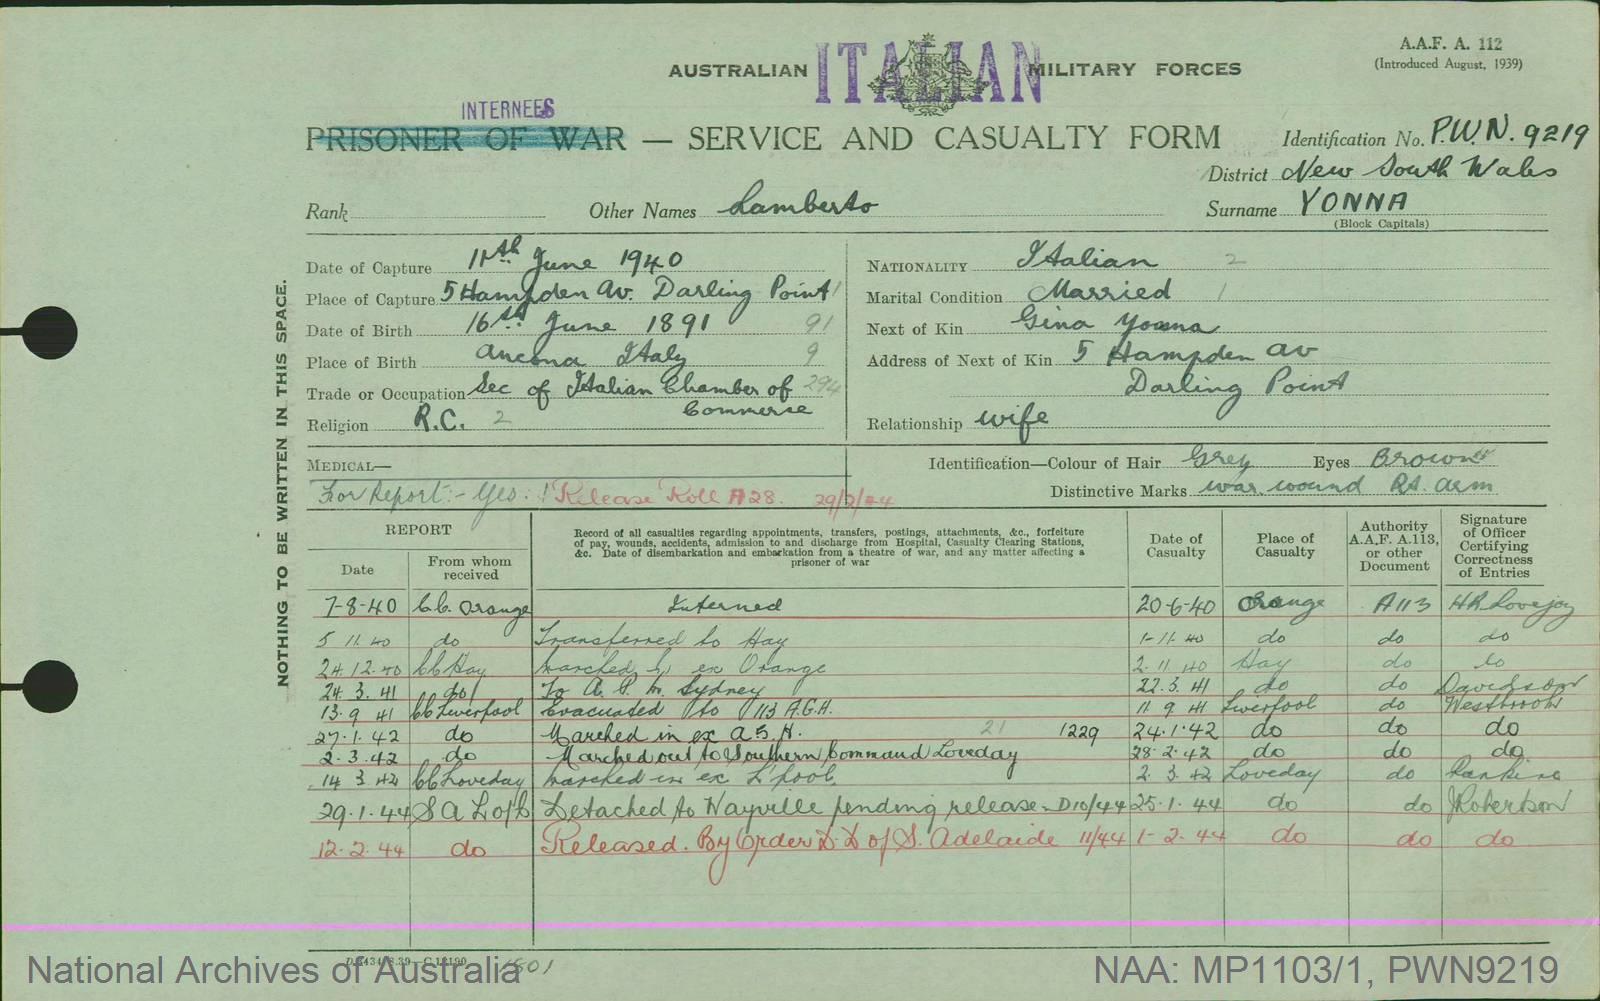 A.A.F. A. 112
(Introduced August, 1939)
ITALIAN
AUSTRALIAN MILITARY FORCES
INTERNEES
PRISONER OF WAR — SERVICE AND CASUALTY FORM
Identification No. P.W.N. 9219
District New South Wales
Rank Other Names Lamberto Surname YONNA
(Block Capitals)
NOTHING TO BE WRITTEN IN THIS SPACE.
Date of Capture 11th June 1940
Place of Capture 5 Hampden Av. Darling Point 1
Date of Birth 16th June 1891 91
Place of Birth Ancona Italy 9
Trade or Occupation Sec of Italian Chamber of 294
Commerce
Religion R.C. 2
NATIONALITY Italian 2
Marital Condition Married 1
Next of Kin Gina Yonna
Address of Next of Kin 5 Hampden Av
Darling Point
Relationship wife
MEDICAL—
For Report:- Yes: Release Roll A28. 29/2/44
Identification—Colour of Hair Grey Eyes Brown
Distinctive Marks war wound Rt. arm
REPORT
Date
From whom received
Record of all casualties regarding appointments, transfers, postings, attachments, &c., forfeiture
of pay, wounds, accidents, admission to and discharge from Hospital, Casualty Clearing Stations,
&c. Date of disembarkation and embarkation from a theatre of war, and any matter affecting a
prisoner of war
Date of Casualty
Place of Casualty
Authority A.A.F. A.113, or other Document
Signature of Officer Certifying Correctness of Entries
7-8-40 C.C. Orange Interned 20-6-40 Orange A113 HR Lovejoy
5 11 40 do Transferred to Hay 1-11-40 do do do
24.12.40 CC Hay Marched in ex Orange 2.11.40 Hay do do
24.3.41 do To A.P.M. Sydney 22.3.41 do do Davidson
13.9.41 CC Liverpool Evacuated to 113 A.G.H. 11.9.41 Liverpool do Westbrook
27.1.42 do Marched in ex A.G.H. 21 1229 24.1.42 do do do
2.3.42 do Marched out to Southern Command Loveday 28.2.42 do do do
14 3 42 CC Loveday Marched in ex L'pool. 2 3 42 Loveday do Rankine
29.1.44 S A L of C Detached to Wayville pending release. D10/44 25.1.44 do do J Robertson
12.2.44 do Released. By Order D.D of S. Adelaide 11/44 1-2.44 do do do
1801
National Archives of Australia
NAA: MP1103/1, PWN9219